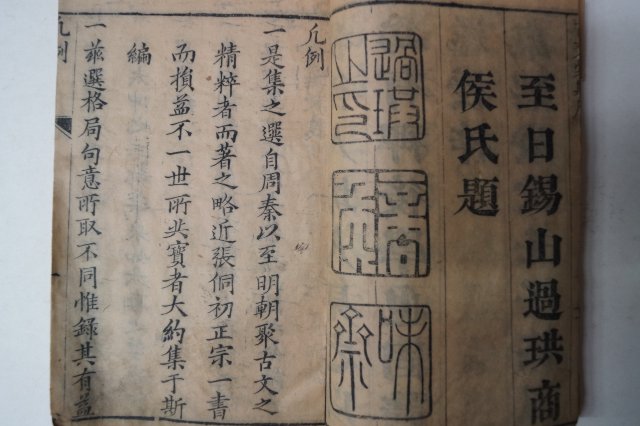 至日錫山過珙商
侯氏題
過珙
之印
凡例
一是集之選自周秦以至明朝聚古文之
精粹者而著之略近張侗初正宗一書
而損益不一世所共寶者大約集于斯
編
一茲選格局句意所取不同惟錄其有益
凡例